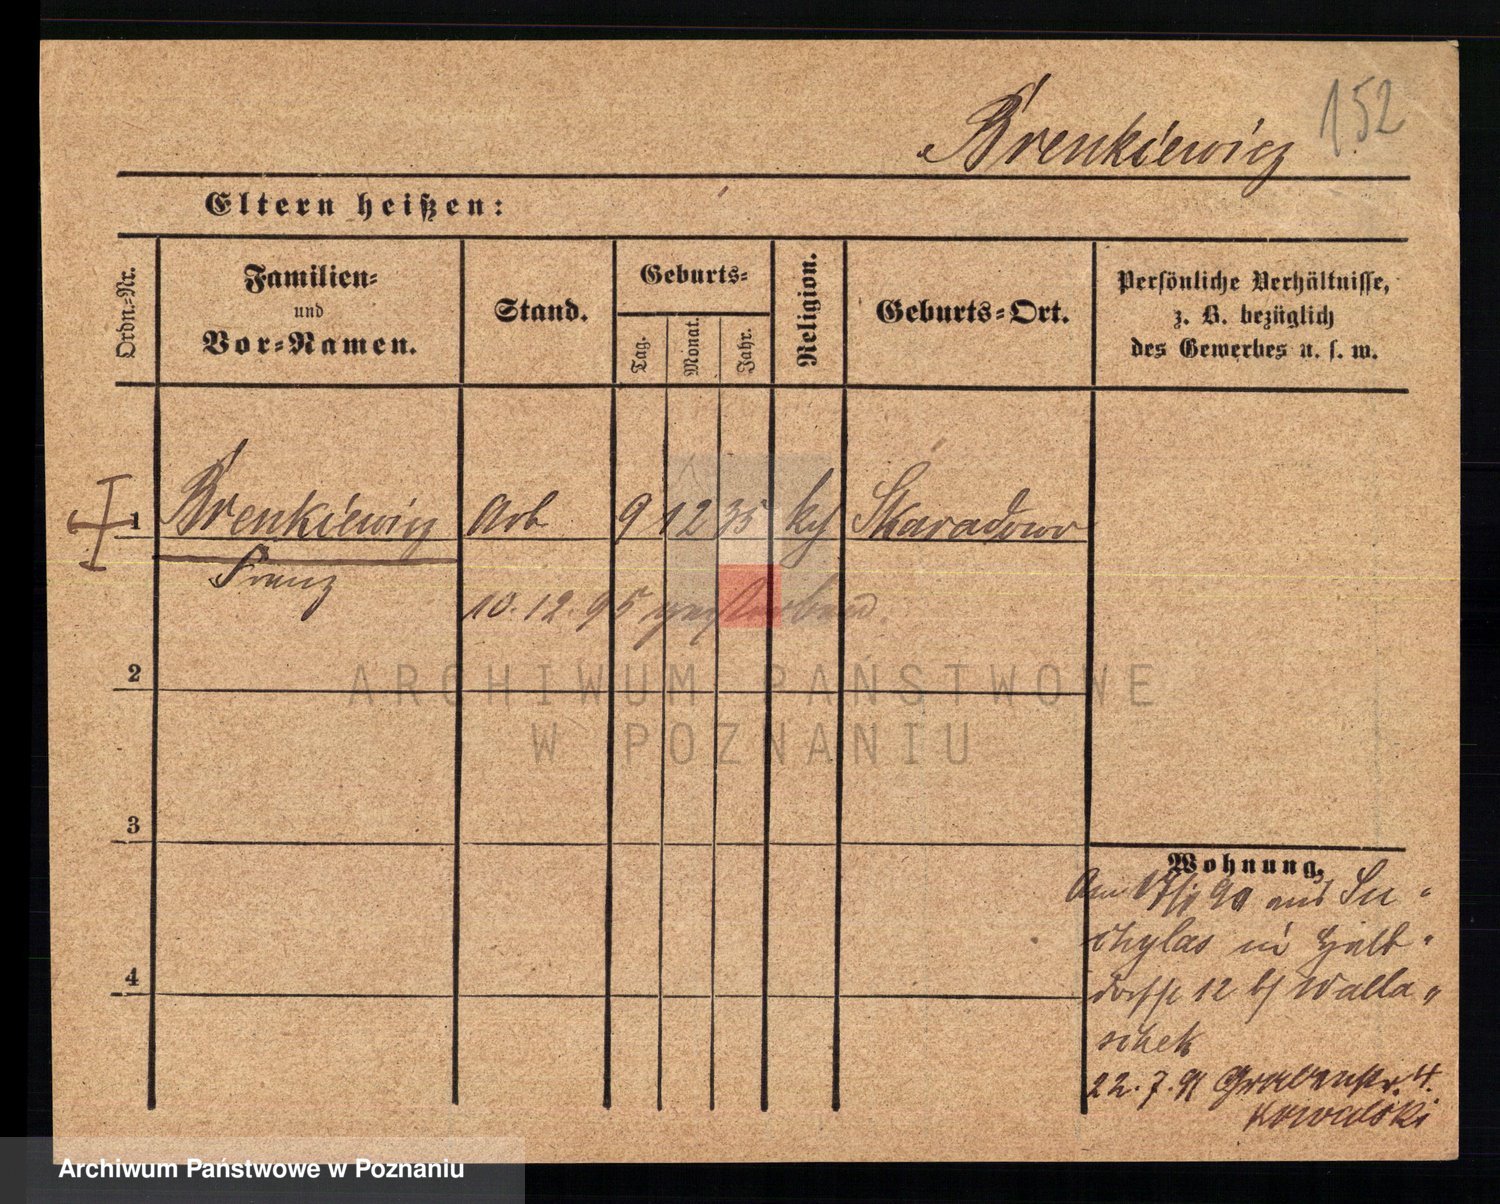 152
Brenkiewicz
Eltern heißen:
Ordn.-Nr.
Familien-
und
Vor-Namen.
Stand.
Geburts-
Tag.
Monat.
Jahr.
Religion.
Geburts-Ort.
Persönliche Verhältnisse,
z. B. bezüglich
des Gewerbes u. s. w.
1 Brenkiewicz Arb 9 12 35 kth Skaradowo
Franz
10. 12. 95 gestorben.
2
3
4
Wohnung.
Am aus Su-
chylas in Halb-
dorfstr 12 b/ Walla-
schek
22. 7. 91 Grabenstr. 4.
Kowalski
ARCHIWUM PAŃSTWOWE
W POZNANIU
Archiwum Państwowe w Poznaniu